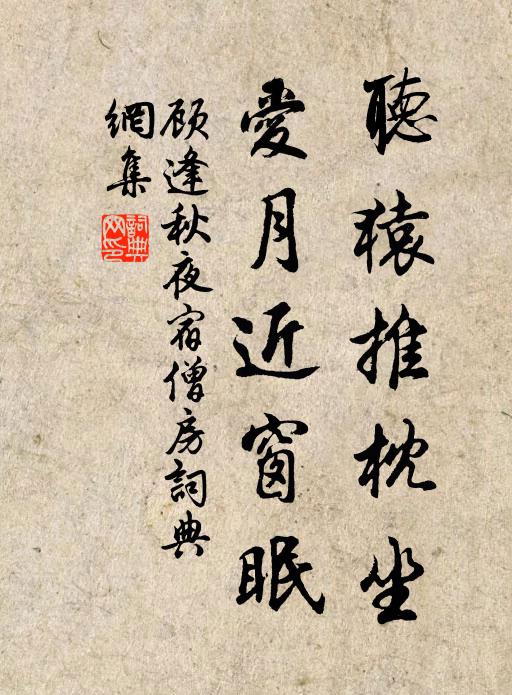 聽猿推枕坐
愛月近窗眠
顧逢秋夜宿僧房詞典
網集
詞典
网印